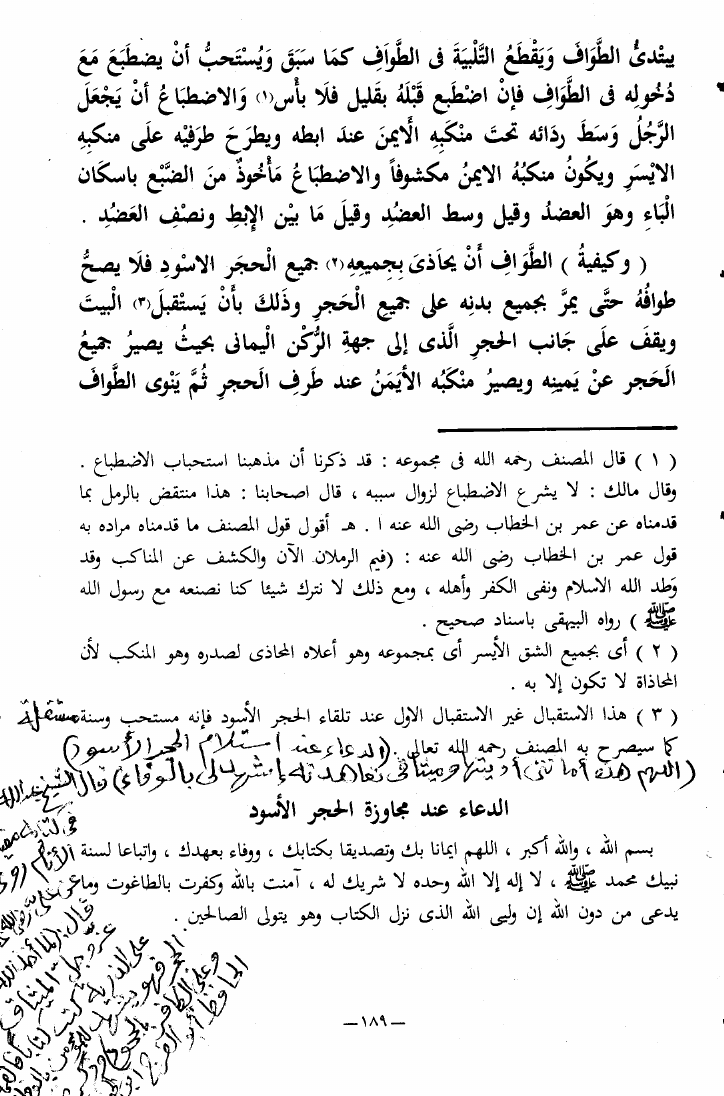 يبتدئُ الطَّوَافَ وَيَقْطَعُ التَّلْبِيَةَ فى الطَّوَافِ كمَا سَبَقَ وَيُسْتَحبُّ أنْ يضطَبَعَ مَعَ
دُخُولِه فى الطَّوَافِ فإنْ اضْطَبع قَبْلَهُ بقَليل فَلَا بأْس (١) وَالاضطِبَاعُ أنْ يَجْعَلَ
الرَّجُلُ وَسَطَ رِدَائه تحتَ منْكَبِهِ الْايمنَ عندَ ابطه ويطرَحَ طرفيْه علَى منكبِهِ
الايْسَرِ ويكُونُ منكبُهُ الايمنُ مكشوفاً والاضطِبَاعُ مَأْخُوذٌ منَ الضَّبْع باسكَان
الْبَاءِ وهوَ العضدُ وقيل وسط العضُدِ وقيلَ مَا بيْن الإبطِ ونصْفِ العَضُدِ .
( وكيفيةُ ) الطَّوَافِ أَنْ يحَاذىَ بِجميعِهِ (٢) جميع الْحجَر الاسْودِ فلَا يصحُّ
طوافُهُ حتَّى يمرَّ بجميع بدنِه على جميعِ الْحَجرِ وذَلكَ بأَنْ يَستْقبلَ (٣) الْبيتَ
ويقفَ علَى جَانب الحجرِ الَّذى إلى جهةِ الرُّكْن الْيمانى بحيثُ يصيرُ جميعُ
الْحَجر عنْ يَمينِه ويصيرُ منْكَبُه الأيَمَنُ عند طَرفِ الْحجرِ ثُمَّ يَنْوى الطَّوافَ
( ١ ) قال المصنف رحمه الله فى مجموعه : قد ذكرنا أن مذهبنا استحباب الاضطباع .
وقال مالك : لا يشرع الاضطباع لزوال سببه ، قال اصحابنا : هذا منتقض بالرمل بما
قدمناه عن عمر بن الخطاب رضى الله عنه ا . هـ أقول قول المصنف ما قدمناه مراده به
قول عمر بن الخطاب رضى الله عنه : (فيم الرملان الآن والكشف عن المناكب وقد
وَطد الله الاسلام ونفى الكفر وأهله ، ومع ذلك لا نترك شيئا كنا نصنعه مع رسول الله
ﷺ ) رواه البيهقى باسناد صحيح .
( ٢ ) أى بجميع الشق الأيسر أى بمجموعه وهو أعلاه المحاذى لصدره وهو المنكب لأن
المحاذاة لا تكون إلا به .
( ٣ ) هذا الاستقبال غير الاستقبال الاول عند تلقاء الحجر الأسود فإنه مستحب وسنة مستقلة
كما سيصرح به المصنف رحمه الله تعالى . (الدعاء عند استلام الحجر الأسود)
(اللهم هذه أمانتى أديتها وميثاقى تعاهدته إشهد لى بالوفاء) قال الشيخ
الدعاء عند مجاوزة الحجر الأسود
بسم الله ، والله أكبر ، اللهم ايمانا بك وتصديقا بكتابك ، ووفاء بعهدك ، واتباعا لسنة
نبيك محمد ﷺ ، لا إله إلا الله وحده لا شريك له ، آمنت بالله وكفرت بالطاغوت وما
يدعى من دون الله إن وليى الله الذى نزل الكتاب وهو يتولى الصالحين .
—١٨٩—